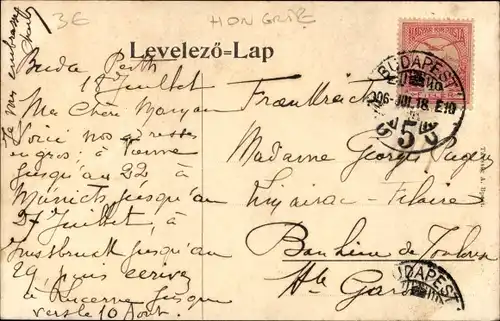 3E
HONGRIE
Levelező-Lap
Buda Pesth
18 Juillet
Ma Chère
Voici nos adresses
en gros: à Vienne
jusqu'au 22 à
Münich jusqu'au
27 Juillet, à
Innsbruck jusqu'au
29, puis écrivez
à Lucerne jusque
vers le 10 Août.
Je vous embrasse
Frankreich
Madame Georges
Filaire
Banlieue de Toulouse
Hte Gar
MAGYAR KIR. POSTA
BUDAPEST
906 JUL. 18. E10
5
BUDAPEST